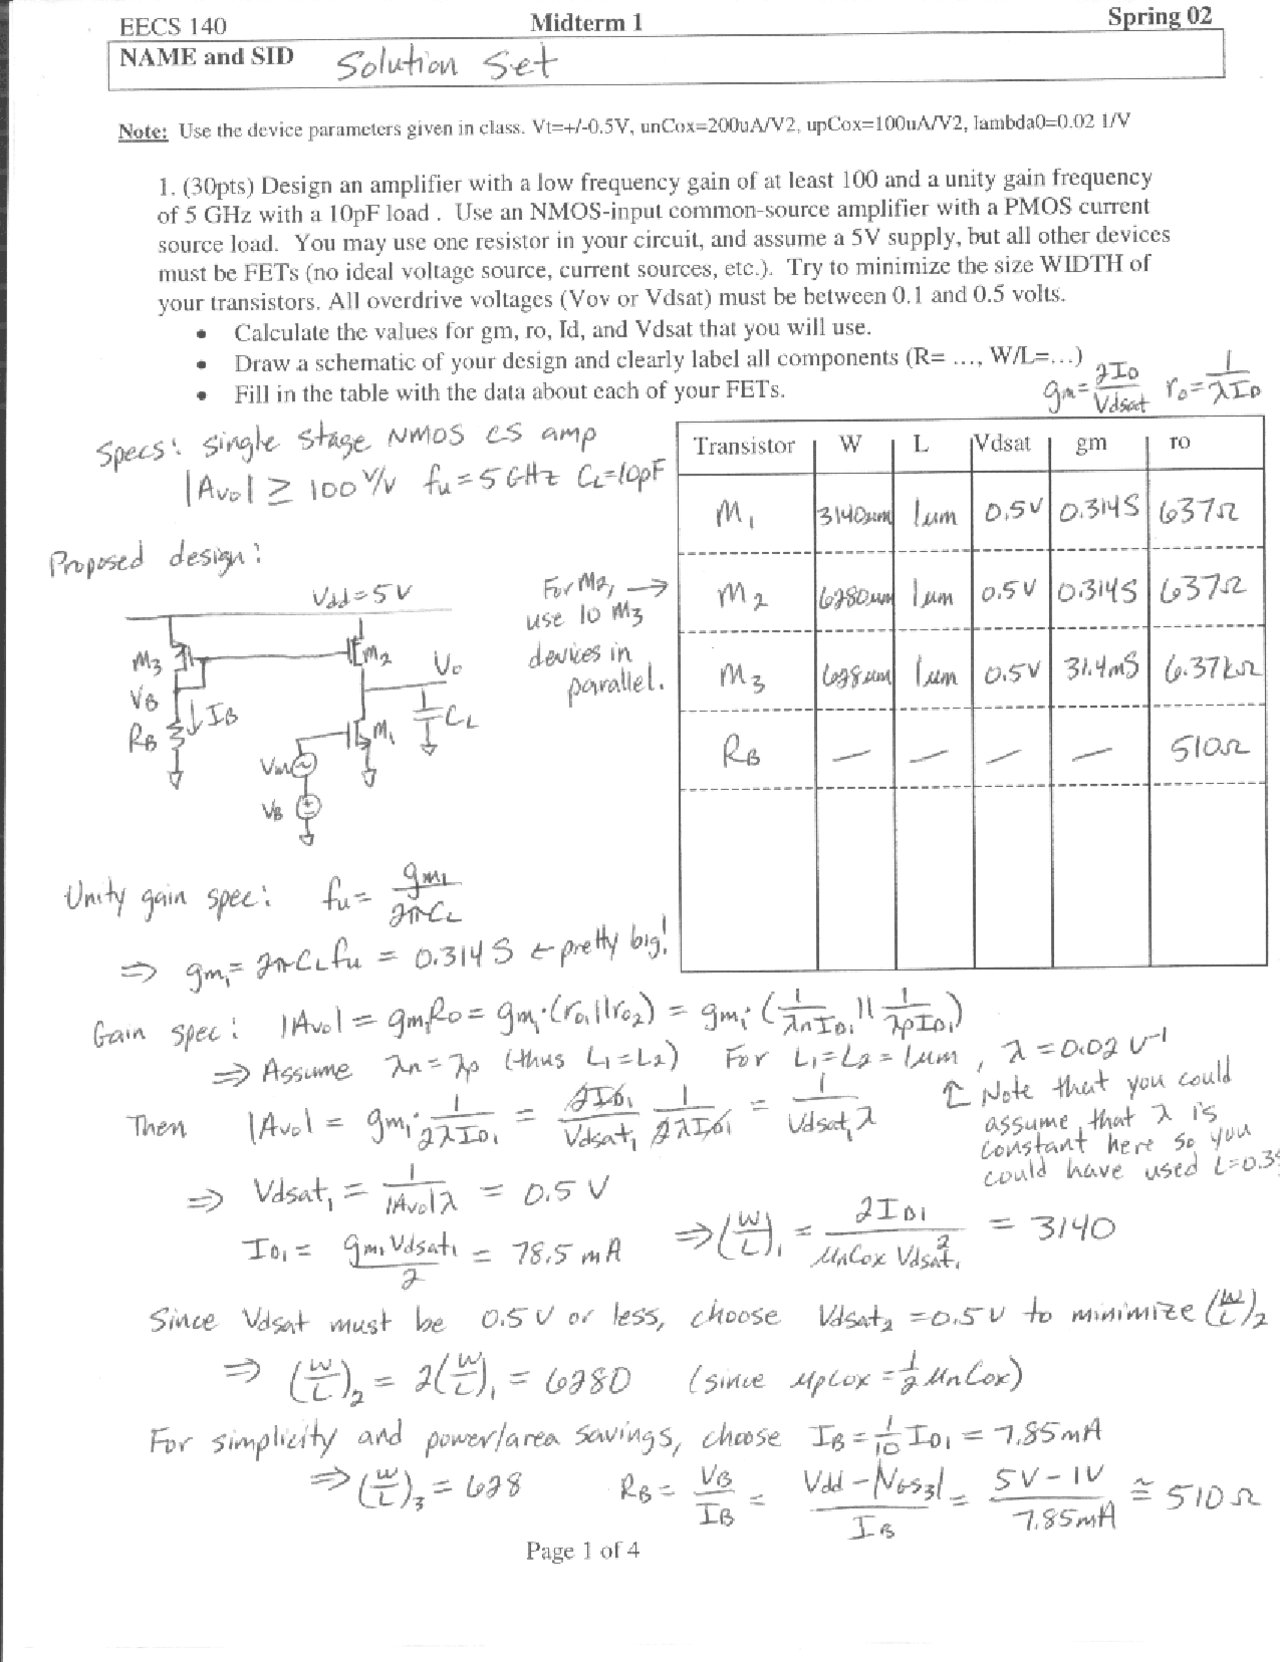 EECS 140 Midterm 1 Spring 02
NAME and SID Solution Set
Note: Use the device parameters given in class. Vt=+/-0.5V, unCox=200uA/V2, upCox=100uA/V2, lambda0=0.02 1/V
1. (30pts) Design an amplifier with a low frequency gain of at least 100 and a unity gain frequency
of 5 GHz with a 10pF load . Use an NMOS-input common-source amplifier with a PMOS current
source load. You may use one resistor in your circuit, and assume a 5V supply, but all other devices
must be FETs (no ideal voltage source, current sources, etc.). Try to minimize the size WIDTH of
your transistors. All overdrive voltages (Vov or Vdsat) must be between 0.1 and 0.5 volts.
• Calculate the values for gm, ro, Id, and Vdsat that you will use.
• Draw a schematic of your design and clearly label all components (R= …, W/L=…)
• Fill in the table with the data about each of your FETs.
gm = 2ID/Vdsat ro = 1/λID
Specs: single stage NMOS CS amp
|Avo| ≥ 100 V/V fu = 5 GHz CL = 10pF
Transistor W L Vdsat gm ro
M1 3140um 1um 0.5V 0.314S 637Ω
M2 6280um 1um 0.5V 0.314S 637Ω
M3 628um 1um 0.5V 31.4mS 6.37kΩ
RB — — — — 510Ω
Proposed design:
For M2, →
use 10 M3
devices in
parallel.
Vdd = 5V
M3
M2
Vo
VB
IB
RB
M1
CL
Vin
VB
Unity gain spec: fu = gm1/2πCL
⇒ gm1 = 2πCLfu = 0.314 S ← pretty big!
Gain spec: |Avo| = gm1Ro = gm1·(ro1||ro2) = gm1·(1/λnID1 || 1/λpID1)
⇒ Assume λn = λp (thus L1 = L2) For L1 = L2 = 1um, λ = 0.02 V⁻¹
↑ Note that you could
assume that λ is
constant here so you
could have used L=0.35
Then |Avo| = gm1·1/2λID1 = 2ID1/Vdsat1 1/2λID1 = 1/Vdsat1λ
⇒ Vdsat1 = 1/|Avo|λ = 0.5 V
ID1 = gm1Vdsat1/2 = 78.5 mA ⇒ (W/L)1 = 2ID1/μnCox Vdsat1² = 3140
Since Vdsat must be 0.5V or less, choose Vdsat2 = 0.5V to minimize (W/L)2
⇒ (W/L)2 = 2(W/L)1 = 6280 (since μpCox = 1/2 μnCox)
For simplicity and power/area savings, choose IB = 1/10 ID1 = 7.85mA
⇒ (W/L)3 = 628 RB = VB/IB = Vdd - |VGS3|/IB = 5V - 1V/7.85mA ≅ 510Ω
Page 1 of 4